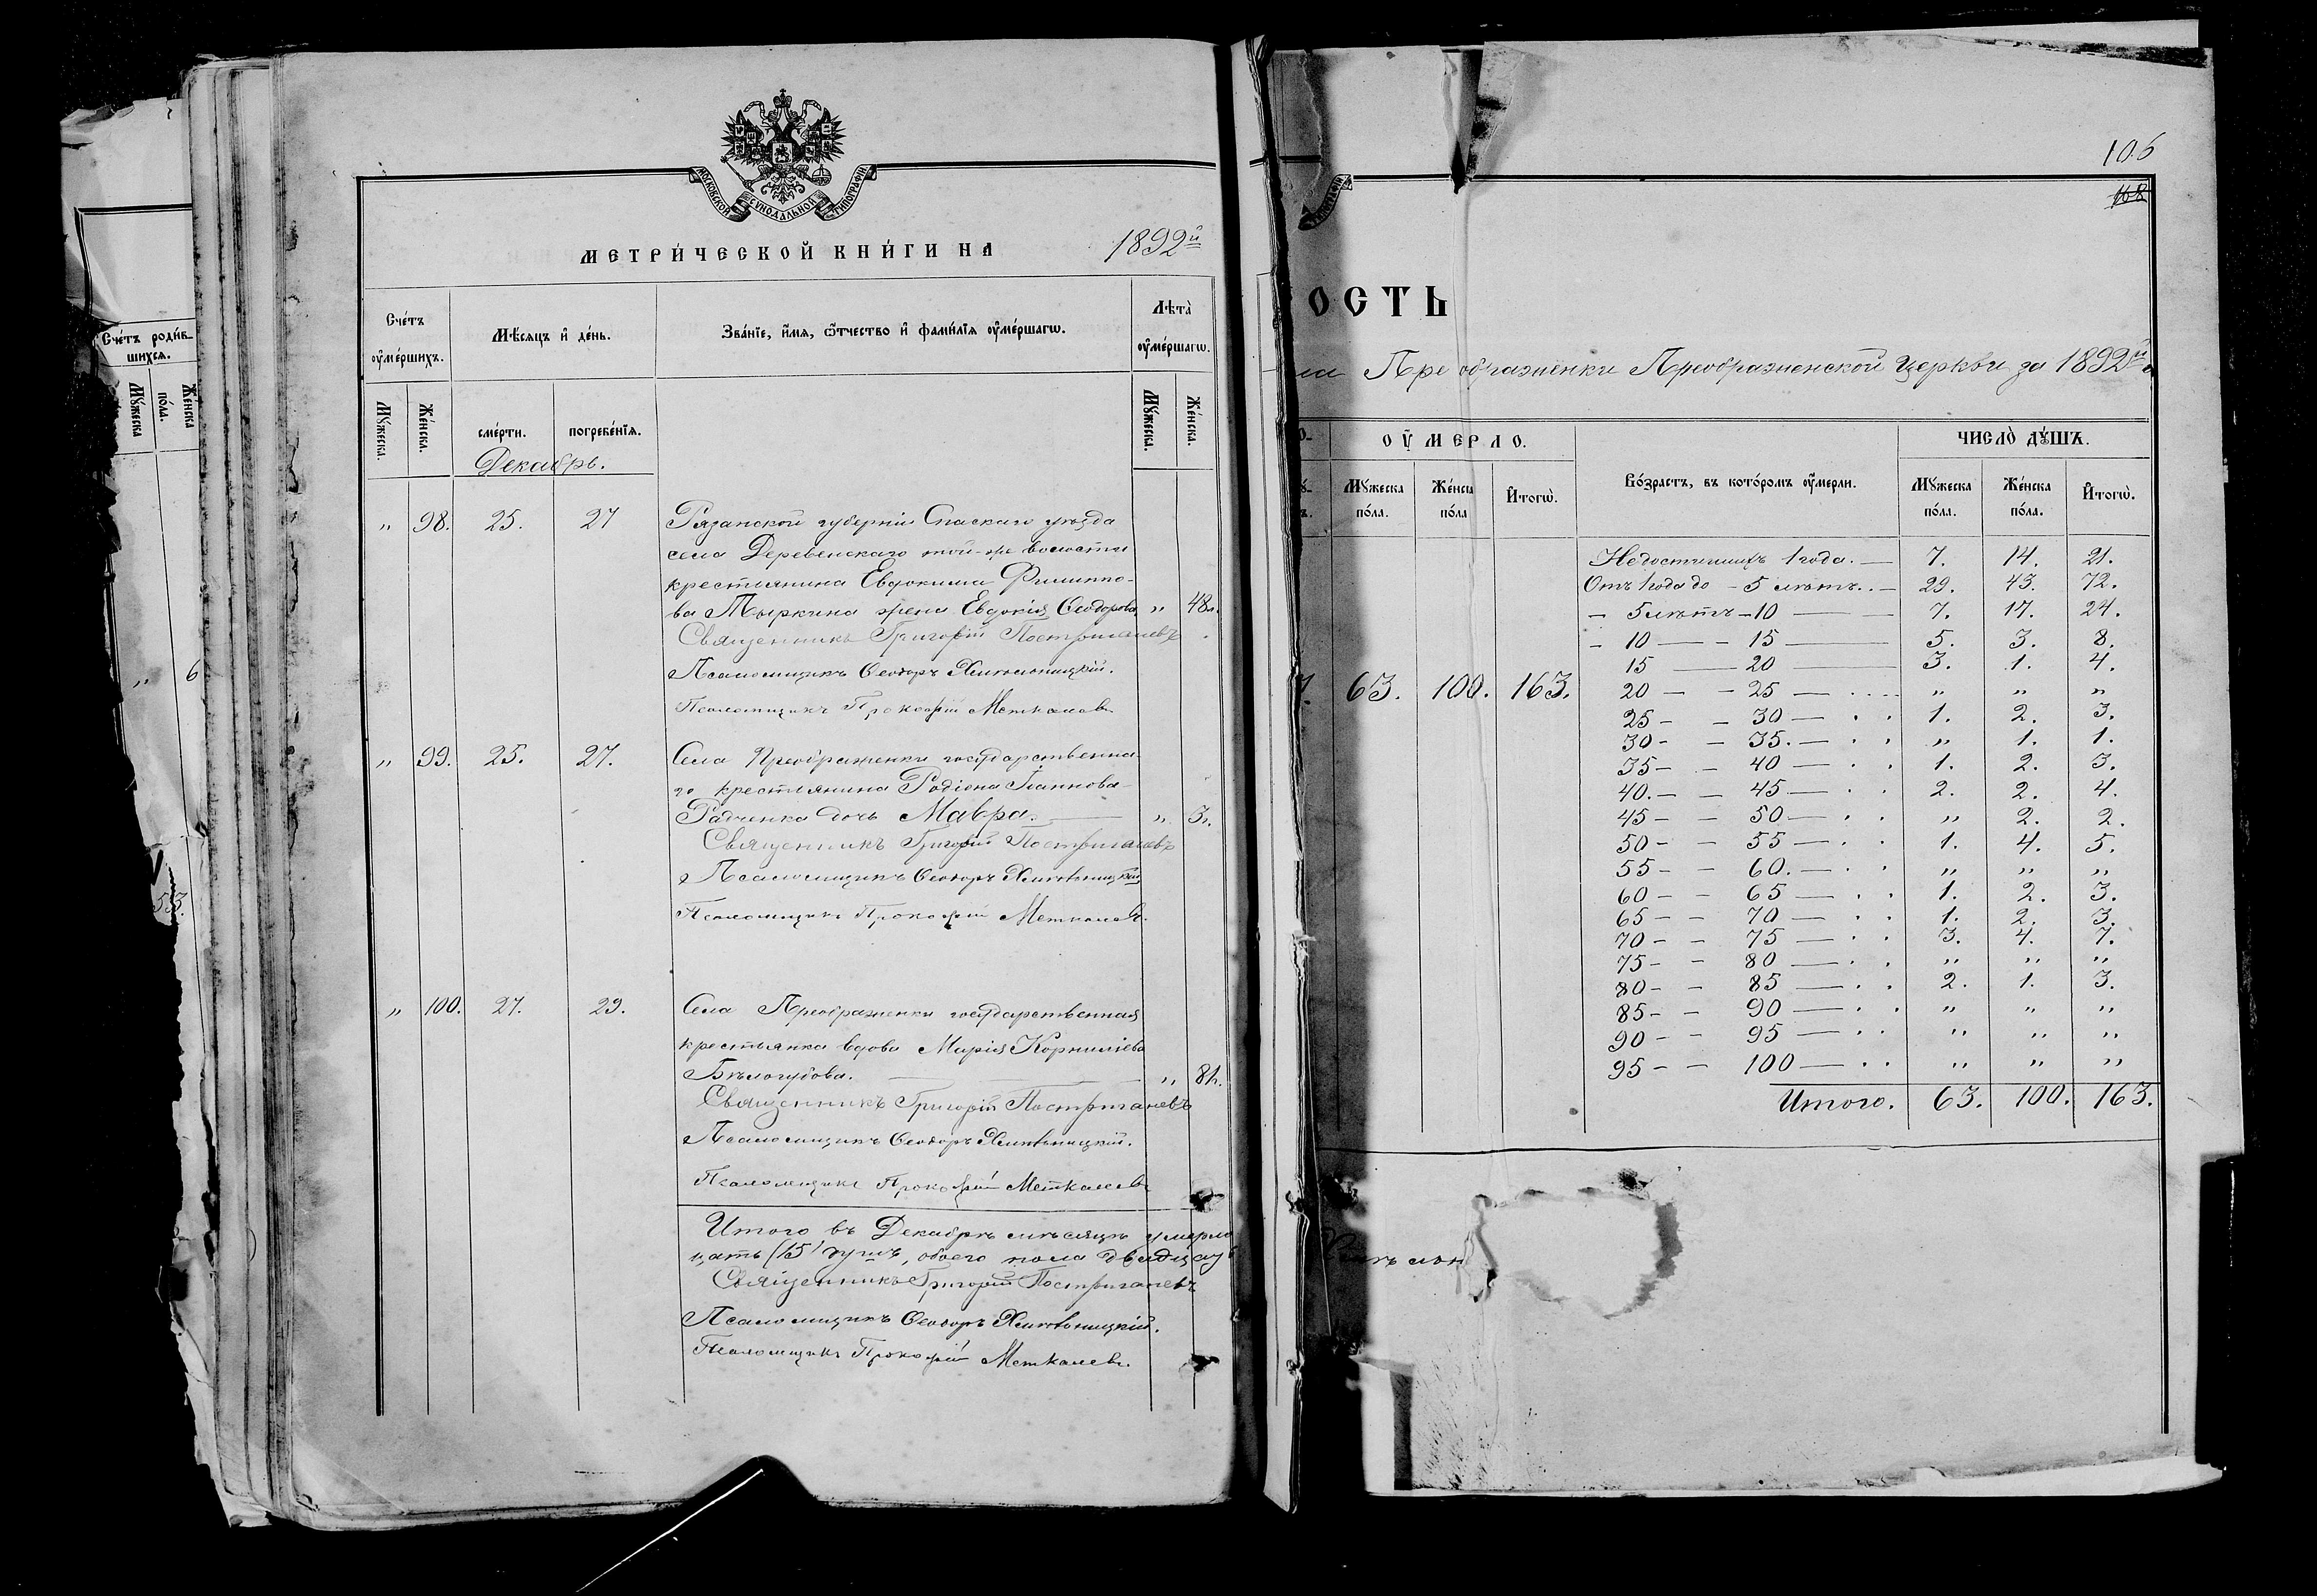 МОСКОВСКОЙ СѴНОДАЛЬНОЙ ТИПОГРАФІИ
МЕТРИ́ЧЕСКОЙ КНИ́ГИ НА 1892й
Сче́тъ ᲂу҆ме́ршихъ.
Мѣ́сяцъ и҆ де́нь.
Зва́нїе, и҆́мя, ѻ҆́тчество и҆ фами́лїя ᲂу҆ме́ршагѡ.
Лѣта̀ ᲂу҆ме́ршагѡ.
Мꙋ́жеска. Же́нска.
сме́рти. погребе́нїя.
Мꙋ́жеска. Же́нска.
Декабрь.
" 98. 25. 27 Рязанской губерніи Спаскаго уѣзда
села Деревенскаго той-же волости
крестьянина Евдокима Филиппо-
ва Тыркина жена Евдокія Ѳеодорова " 48л.
Священникъ Григорій Постригачевъ
Псаломщикъ Ѳеодоръ Хмѣльницкій.
Псаломщикъ Прокофій Меткалевъ
" 99. 25. 27. Села Преображенки государственна-
го крестьянина Родіона Іоаннова
Радченка дочь Мавра. " 3г.
Священникъ Григорій Постригачевъ
Псаломщикъ Ѳеодоръ Хмѣльницкій
Псаломщикъ Прокофій Меткалевъ.
" 100. 27. 29. Села Преображенки государственная
крестьянка вдова Марія Корниліева
Бѣлогубова. " 81.
Священникъ Григорій Постригачевъ
Псаломщикъ Ѳеодоръ Хмѣльницкій.
Псаломщикъ Прокофій Меткалевъ
Итого въ Декабрѣ мѣсяцѣ умерло
цать (15) душъ, обоего пола двадцать
Священникъ Григорій Постригачевъ
Псаломщикъ Ѳеодоръ Хмѣльницкій.
Псаломщикъ Прокофій Меткалевъ.
Сче́тъ роди́в-
шихся.
Мꙋ́жеска Же́нска по́ла.
" 6
53.
106
168
ОСТЬ
Преображенки Преображенской церкви за 1892й
ᲂУ҆ М Е Р Л О.
Во́зрастъ, въ кото́ромъ ᲂу҆́мерли.
ЧИСЛО̀ ДꙊ́ШЪ.
Мꙋ́жеска по́ла. Же́нска по́ла И҆тогѡ̀.
Мꙋ́жеска по́ла. Же́нска по́ла. И҆тогѡ̀.
63. 100. 163.
Недостигшихъ 1 года. — 7. 14. 21.
Отъ 1 года до – 5 лѣтъ. – 29. 43. 72.
– 5 лѣтъ – 10 — 7. 17. 24.
– 10 — – 15 — 5. 3. 8.
15 — 20 — 3. 1. 4.
20 – – 25 — " " "
25 – – 30 — 1. 2. 3.
30 – – 35. — " 1. 1.
35 – – 40 — 1. 2. 3.
40. – – 45 — 2. 2. 4.
45 – – 50 — " 2. 2.
50 – – 55 — 1. 4. 5.
55 – – 60. — " " "
60 – – 65 — 1. 2. 3.
65 – – 70 — 1. 2. 3.
70 – – 75 — 3. 4. 7.
75 – – 80 — " " "
80 – – 85 — 2. 1. 3.
85 – – 90 — " " "
90 – – 95 — " " "
95 – – 100 — " " "
Итого. 63. 100. 163.